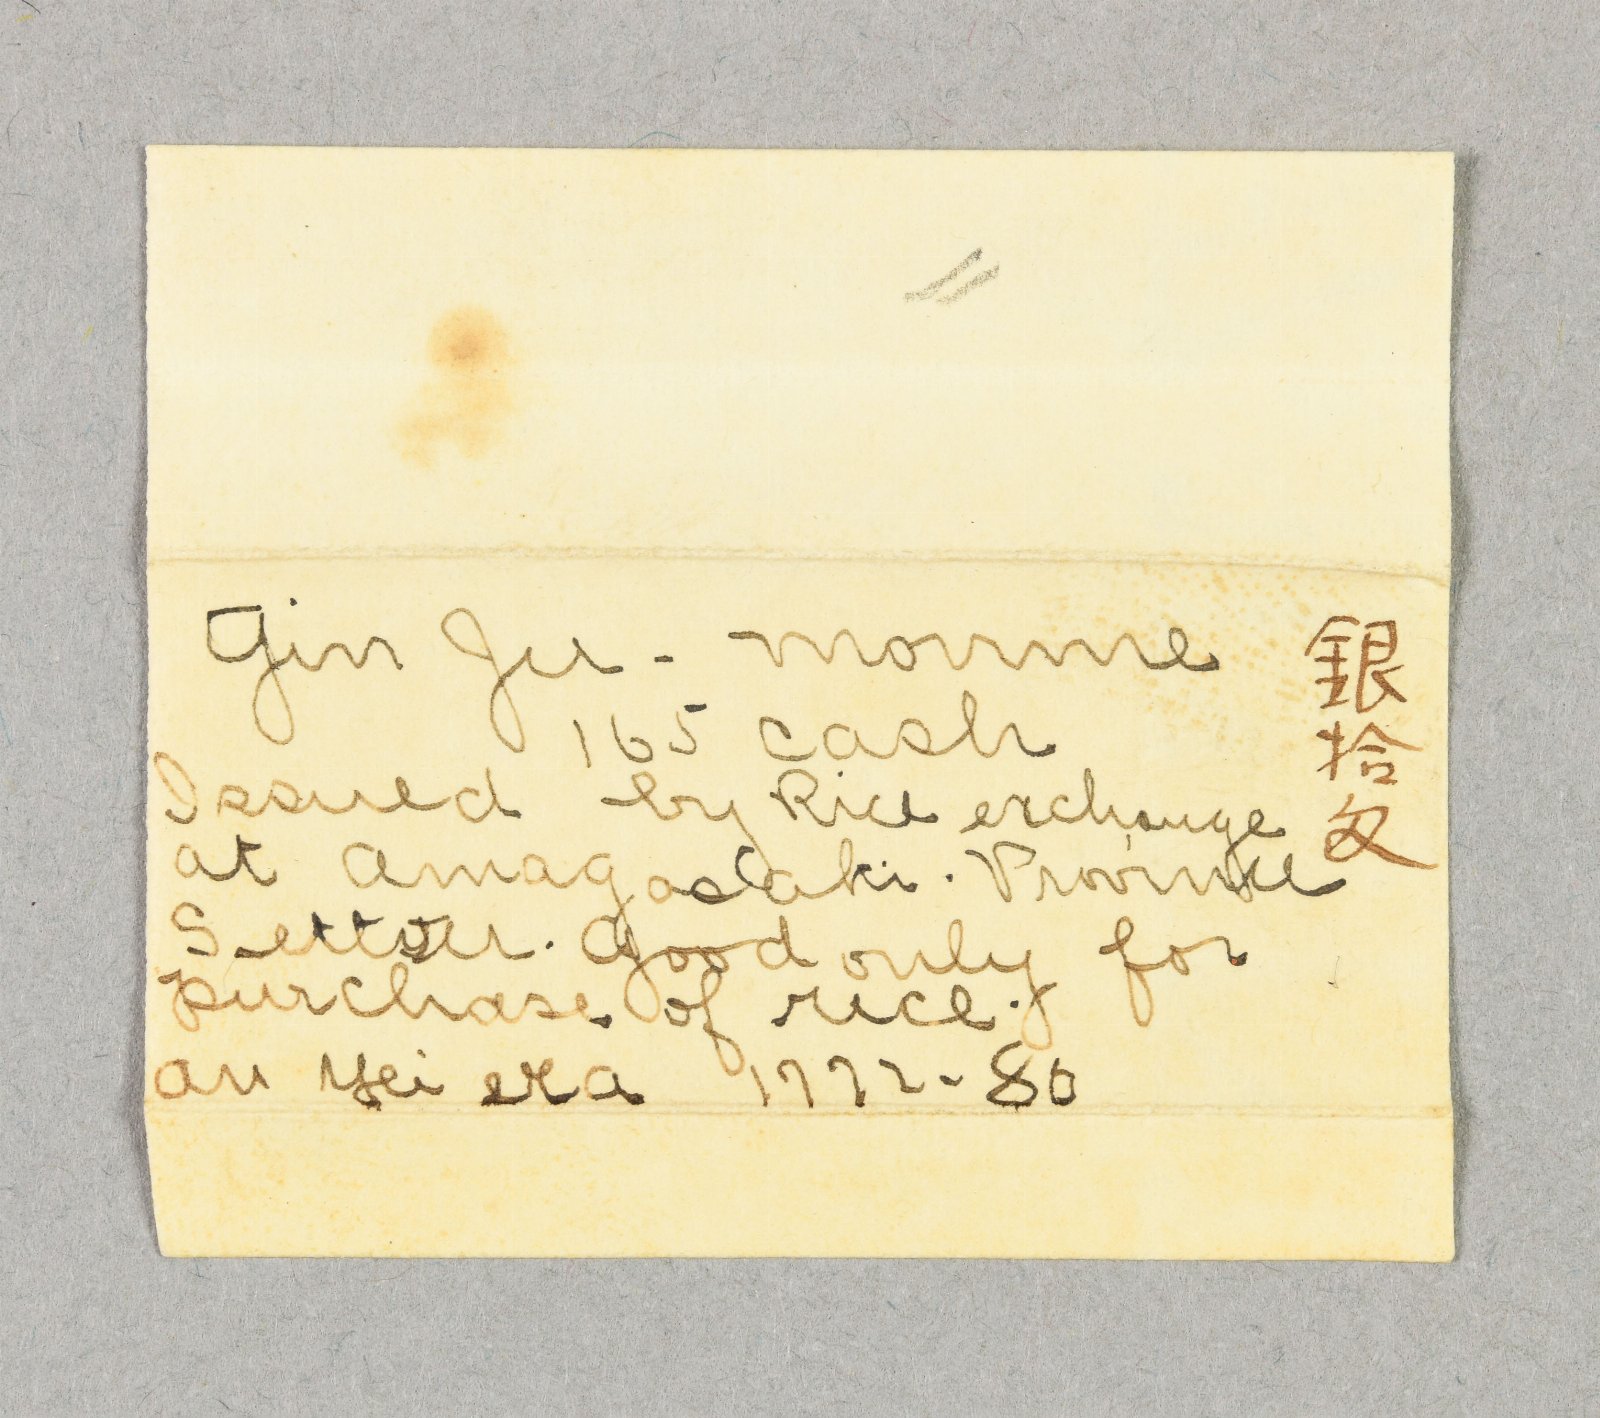 Gin Ju - monme
165 cash
Issued by Rice exchange
at Amagasaki. Province
Settsu. Good only for
purchase of rice.
An Yei era 1772-80
銀拾匁